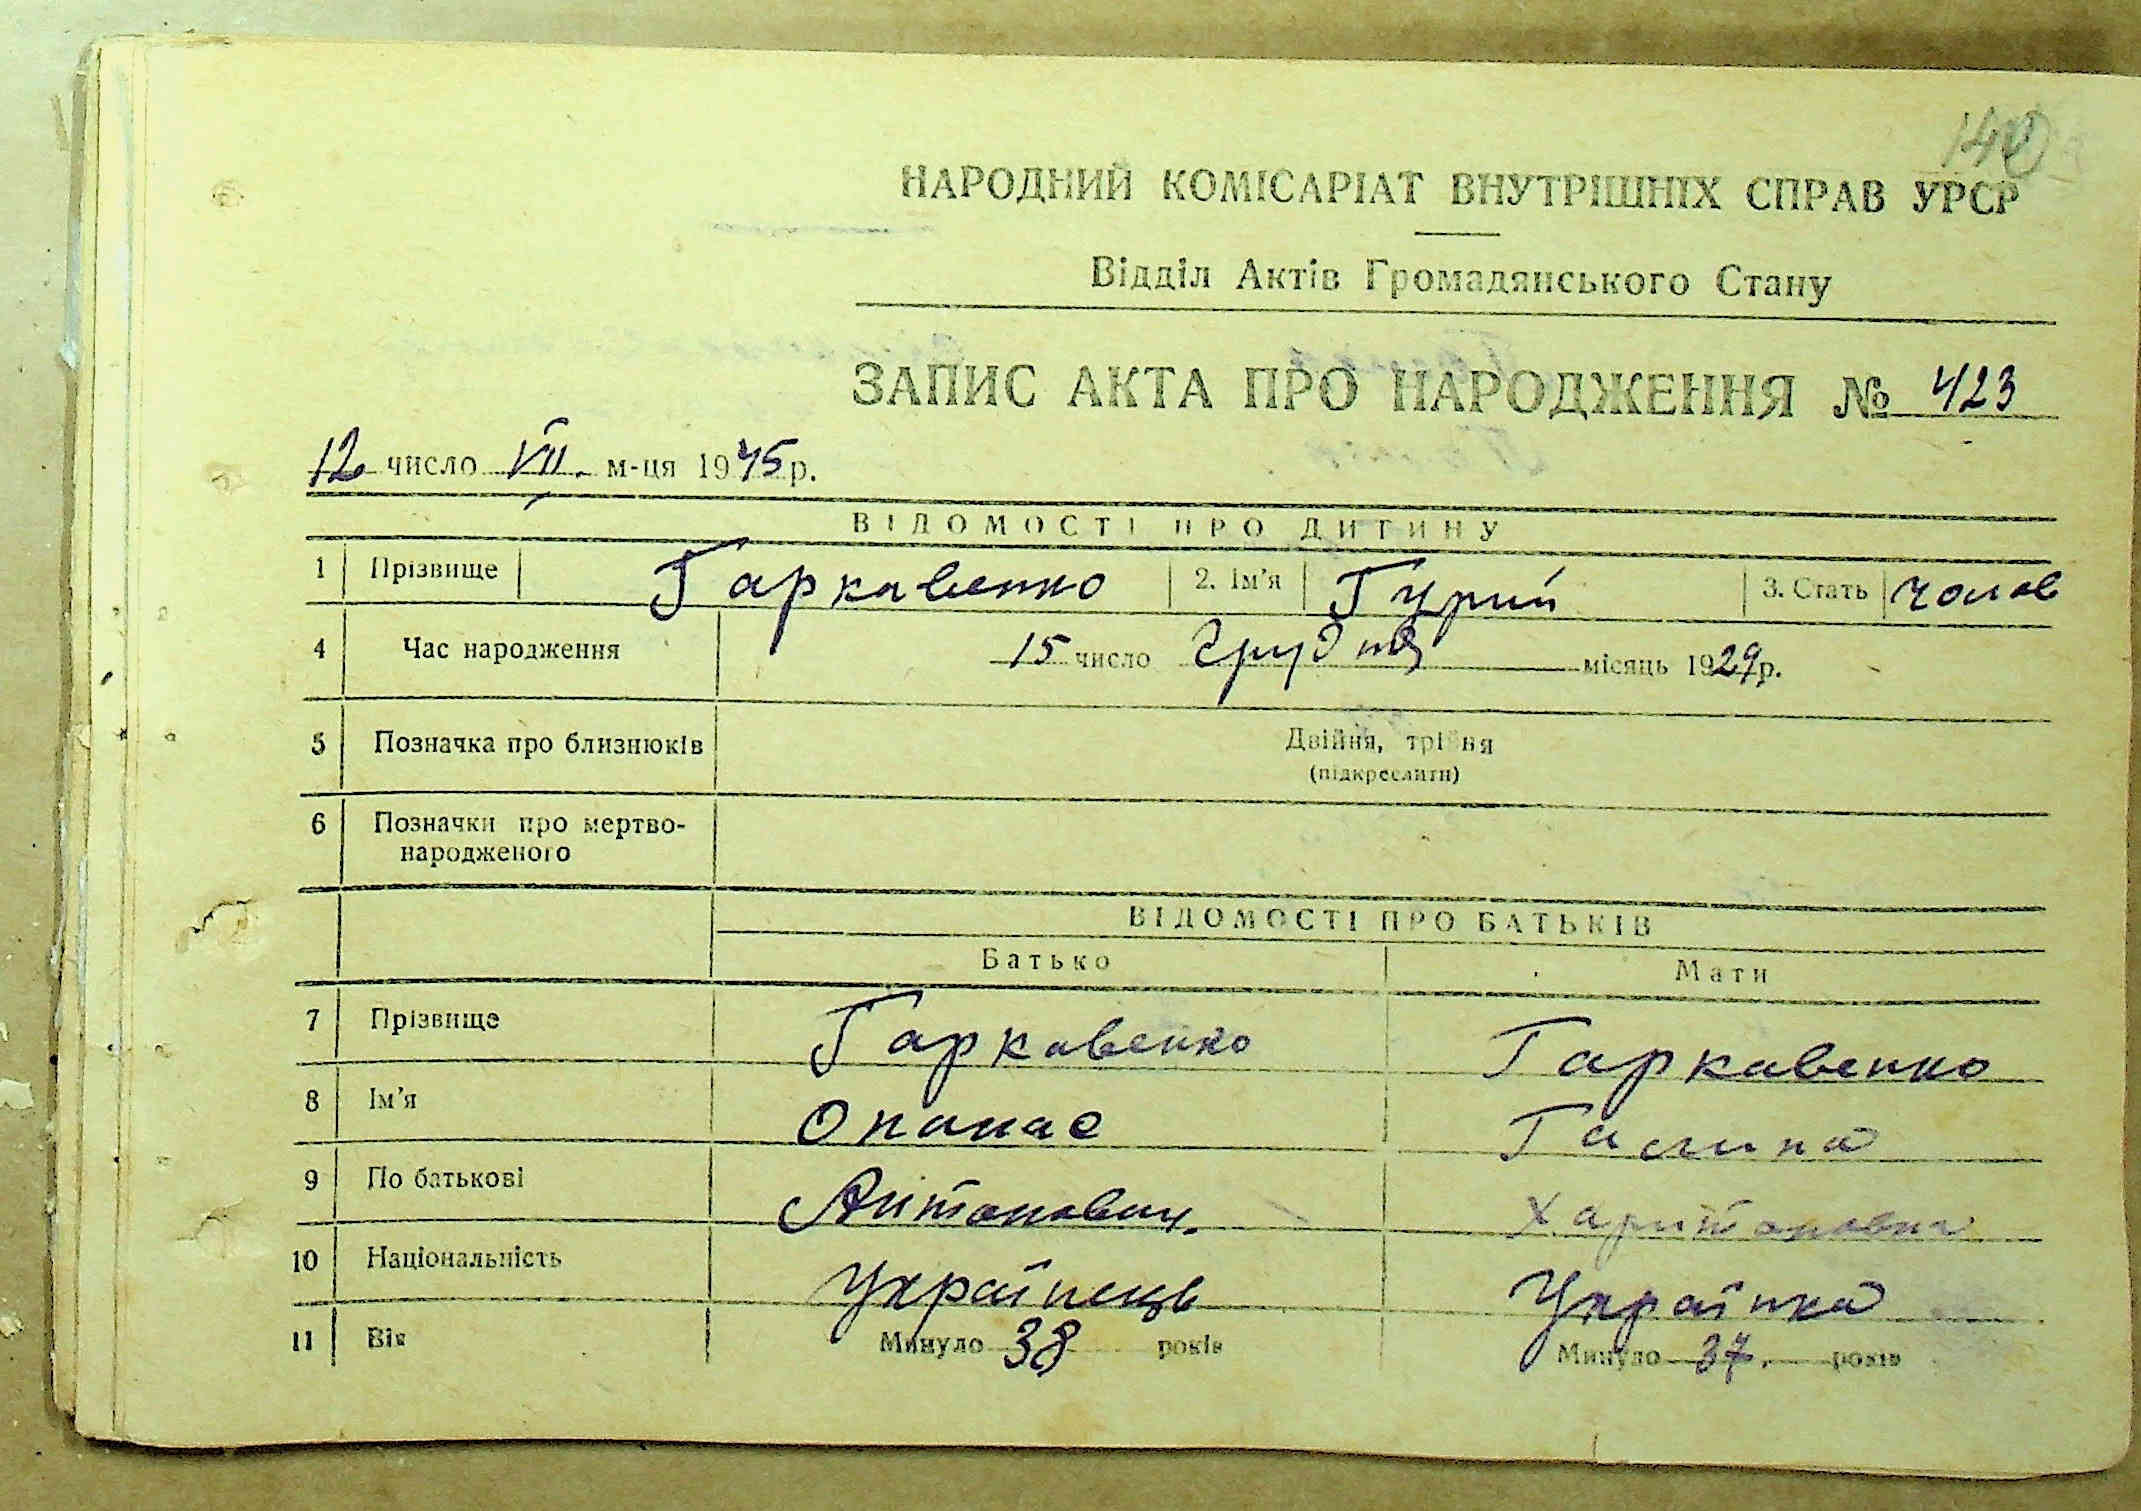 140
НАРОДНИЙ КОМІСАРІАТ ВНУТРІШНІХ СПРАВ УРСР
Відділ Актів Громадянського Стану
ЗАПИС АКТА ПРО НАРОДЖЕННЯ № 423
12 число VII. м-ця 1945 р.
ВІДОМОСТІ ПРО ДИТИНУ
1 Прізвище Гаркавенко 2. Ім'я Гурий 3. Стать чолов
4 Час народження 15 число грудня місяць 1929 р.
5 Позначка про близнюків Двійня, трійня
(підкреслити)
6 Позначки про мертво-
народженого
ВІДОМОСТІ ПРО БАТЬКІВ
Батько Мати
7 Прізвище Гаркавенко Гаркавенко
8 Ім'я Опанас Галина
9 По батькові Антонович. Харитоновна
10 Національність Українець Українка
11 Вік Минуло 38 років Минуло 37. років